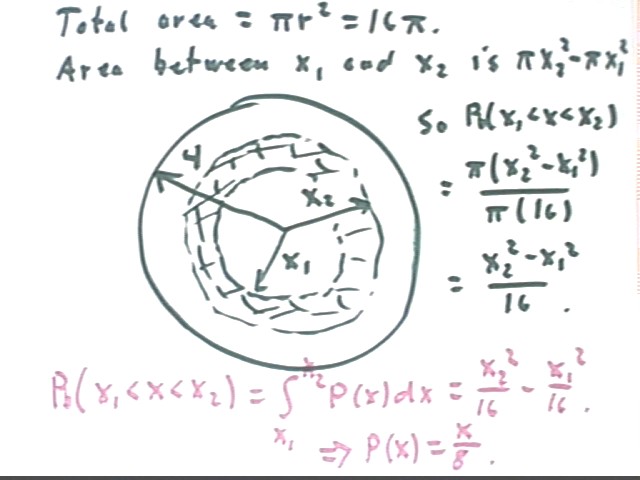 Total area = πr² = 16π.
Area between x₁ and x₂ is πx₂² - πx₁²
So Pb(x₁<x<x₂)
= π(x₂² - x₁²) / π(16)
= x₂² - x₁² / 16 .
4
x₂
x₁
Pb(x₁<x<x₂) = ∫x₁^x₂ P(x)dx = x₂²/16 - x₁²/16 .
⇒ P(x) = x/8 .